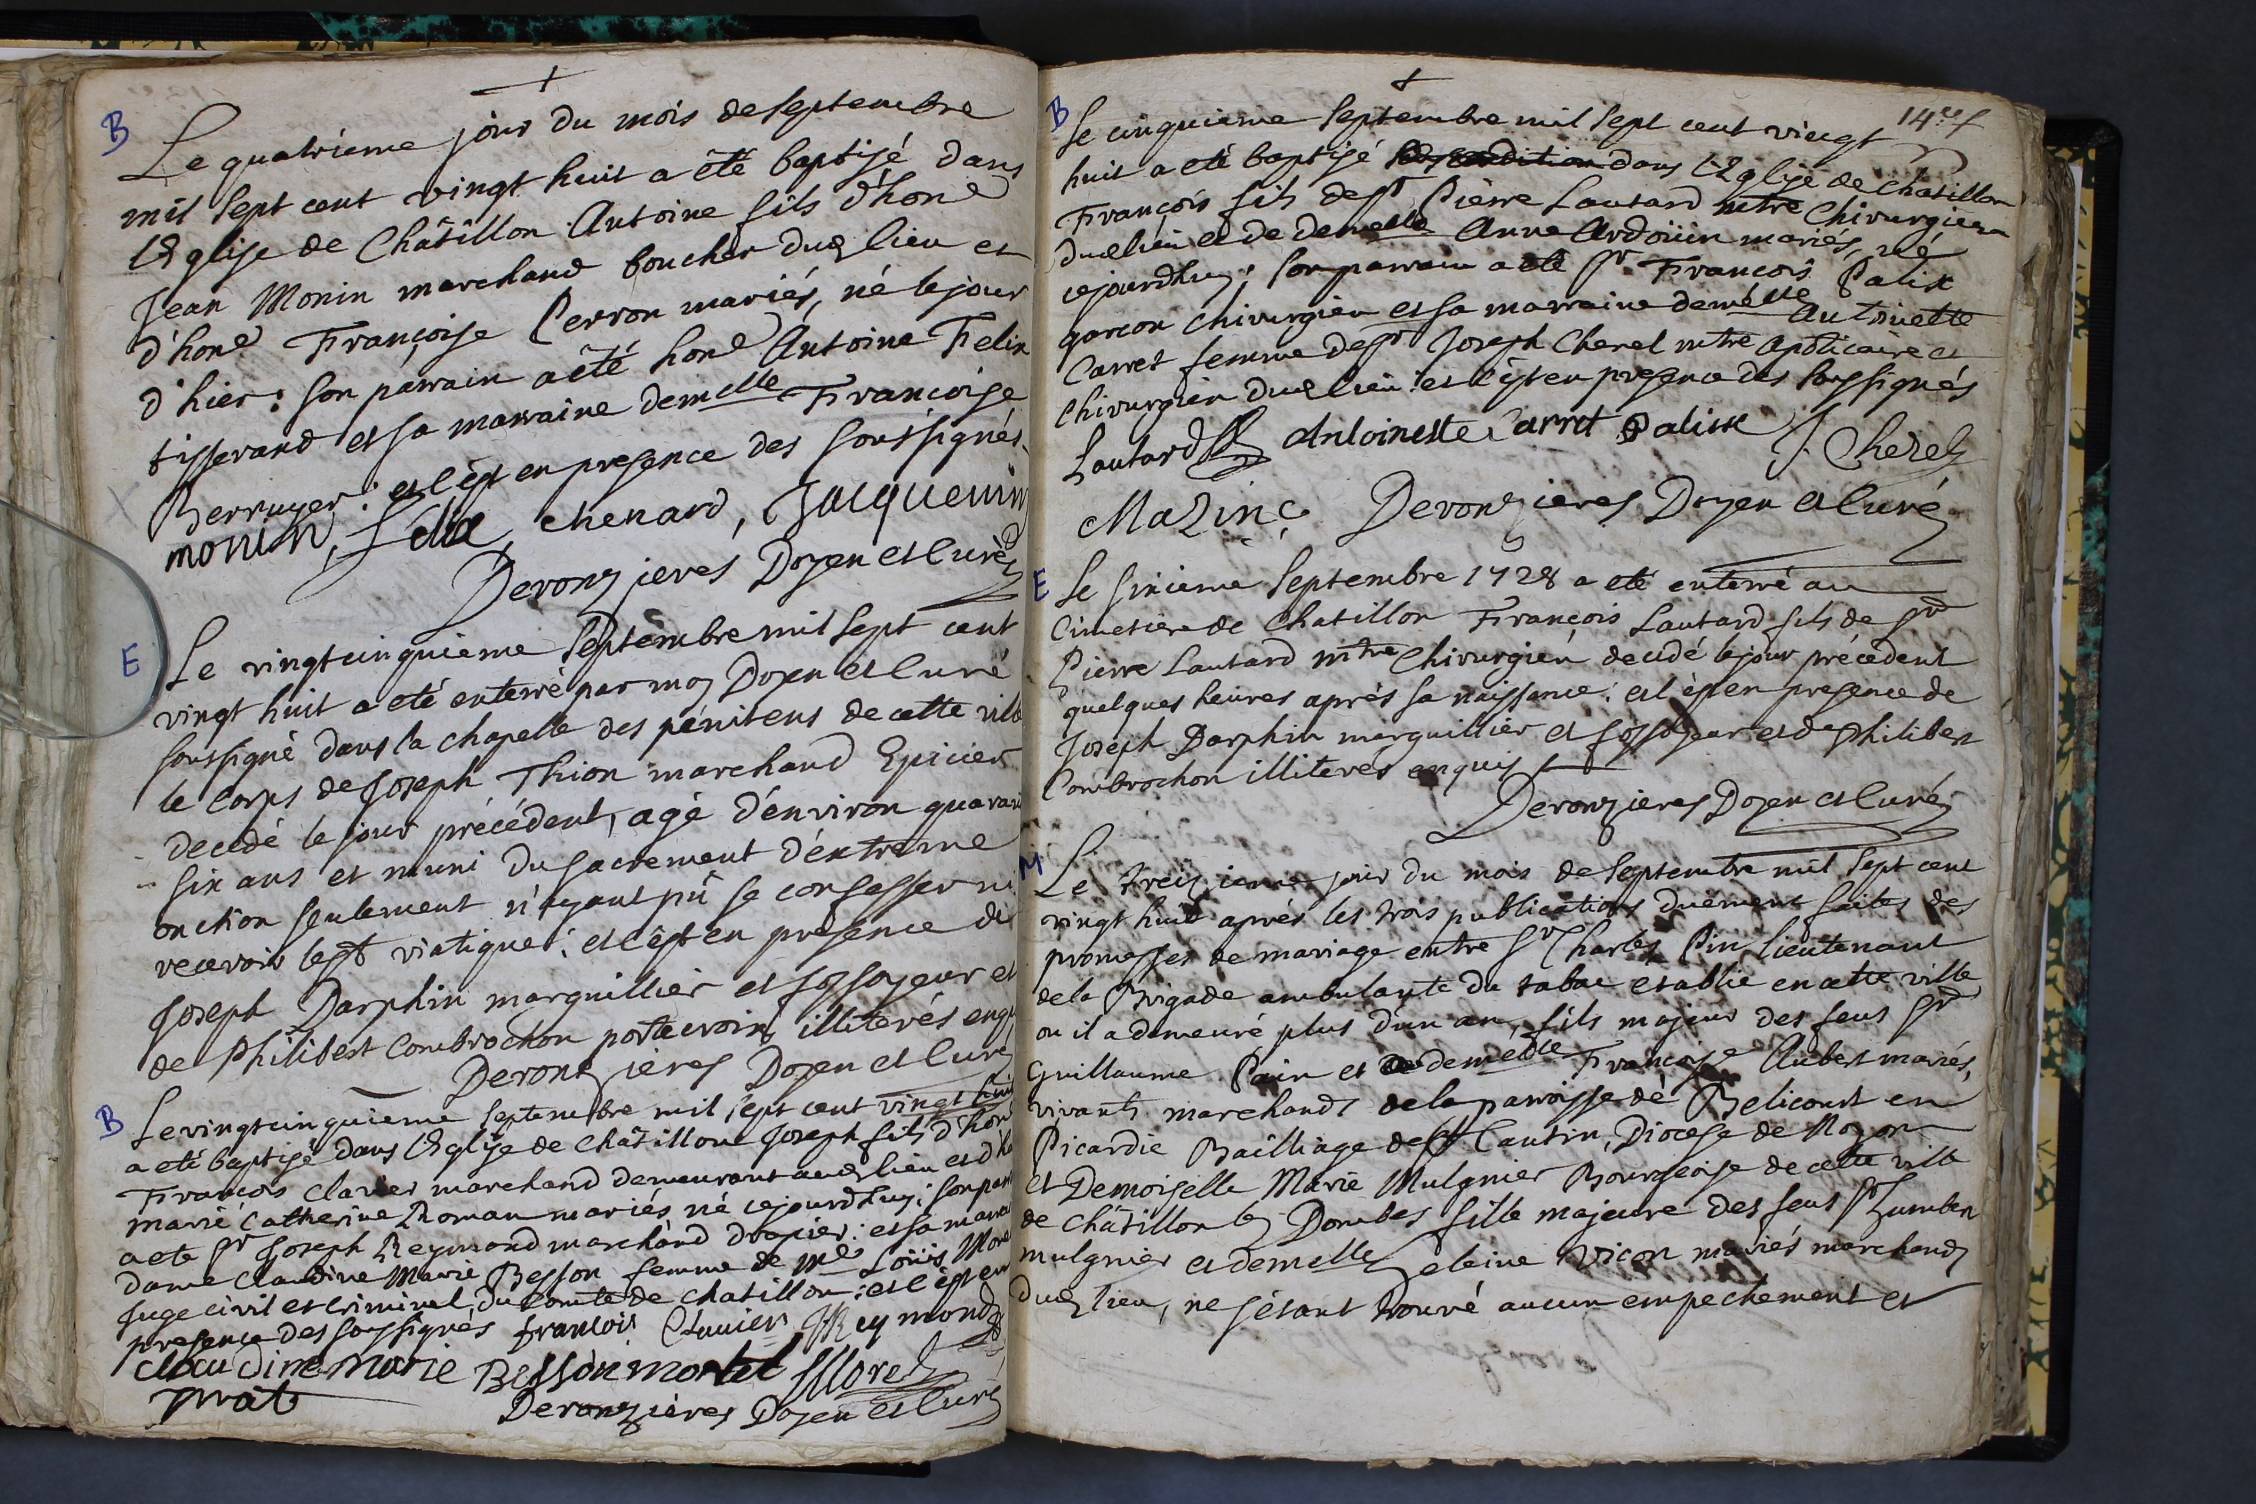 B
Le quatriéme jour du mois de septembre
mil sept cent vingt huit a été baptisé dans
l'Eglise de Châtillon Antoine fils d'hone
Jean Monin marchand boucher dud lieu et
d'hone Françoise Perron mariés, né le jour
d'hier: son parrain a été hone Antoine Felix
tisserand et sa marraine demelle Françoise
Berruyer: et c'est en presence des soussignés.
monin, felix, chenard, Jacquemin
Deronzieres Doyen et Curé
E
Le vingtcinquieme septembre mil sept cent
vingt huit a eté enterré par moy Doyen et Curé
soussigné dans la chapelle des pénitens de cette ville
le corps de Joseph Thion marchand Epicier
decedé le jour précédent, agé d'environ quaran
six ans et muni du sacrement d'extreme
onction seulement n'ayant pû se confesser ni
recevoir le st viatique: et c'est en presence de
Joseph Darphin marguillier et fossoyeur et
de Philibert Combrochon portecroix illiterés enqu
Deronzieres Doyen et Curé
B
Le vingtcinquieme septembre mil sept cent vingt huit
a eté baptisé dans l'Eglise de Châtillon Joseph fils d'hon
François Clavier marchand demeurant aud lieu et d'h
marié Catherine Thoman mariés né cejourdhuy: son par
a ete sr Joseph Reymond marchand drapier: et sa marra
dame Claudine Marie Besson femme de Me Loüis More
Juge civil et criminel du Comté de Chatillon: et c'est en
presence des soussignés francois Clavier JReymond
claudine marie Besson morel Morel
Deronzières Doyen et Curé
14e f
B
Le cinquieme septembre mil sept cent vingt
huit a eté baptisé dans l'Eglise de Chatillon
François fils de sr Pierre Lautard mtre Chirurgien
dud lieu et de demelle Anne Ardoüin mariés, né
cejourdhuy: son parrain a eté sr François Palix
garçon chirurgien et sa marraine demelle Antoinette
Carret femme de sr Joseph Cherel mtre Apoticaire et
Chirurgien dud lieu: et c'est en presence des soussignés
Lautard Antoinette Carret Palisse J. Cherel
Mazinç Deronzieres Doyen et Curé
E
Le sixieme septembre 1728 a eté enterré au
Cimetiere de Chatillon François Lautard fils de sr
Pierre Lautard mtre Chirurgien decedé le jour précedent
quelques heures aprés sa naissance: et c'est en presence de
Joseph Darphin marguillier et fossoyeur et de Philibert
Combrochon illiterés enquis
Deronzieres Doyen et Curé
M
Le treizieme jour du mois de septembre mil sept cent
vingt huit aprés les trois publications duëment faites des
promesses de mariage entre sr Charles Pin lieutenant
de la Brigade ambulante du tabac etablie en cette ville
ou il a demeuré plus d'un an, fils majeur des feus sr
Guillaume Pain et demelle Françoise Aubert mariés,
vivants marchands de la parroisse de Belicourt en
Picardie Bailliage de st Cantin, Diocese de Noyon
et Demoiselle Marie Mulgnier Bourgeoise de cette ville
de Châtillon les Dombes fille majeure des feus sr humber
mulgnier et demelle heleine Vicon mariés marchands
dud lieu, ne s'étant trouvé aucun empechement et